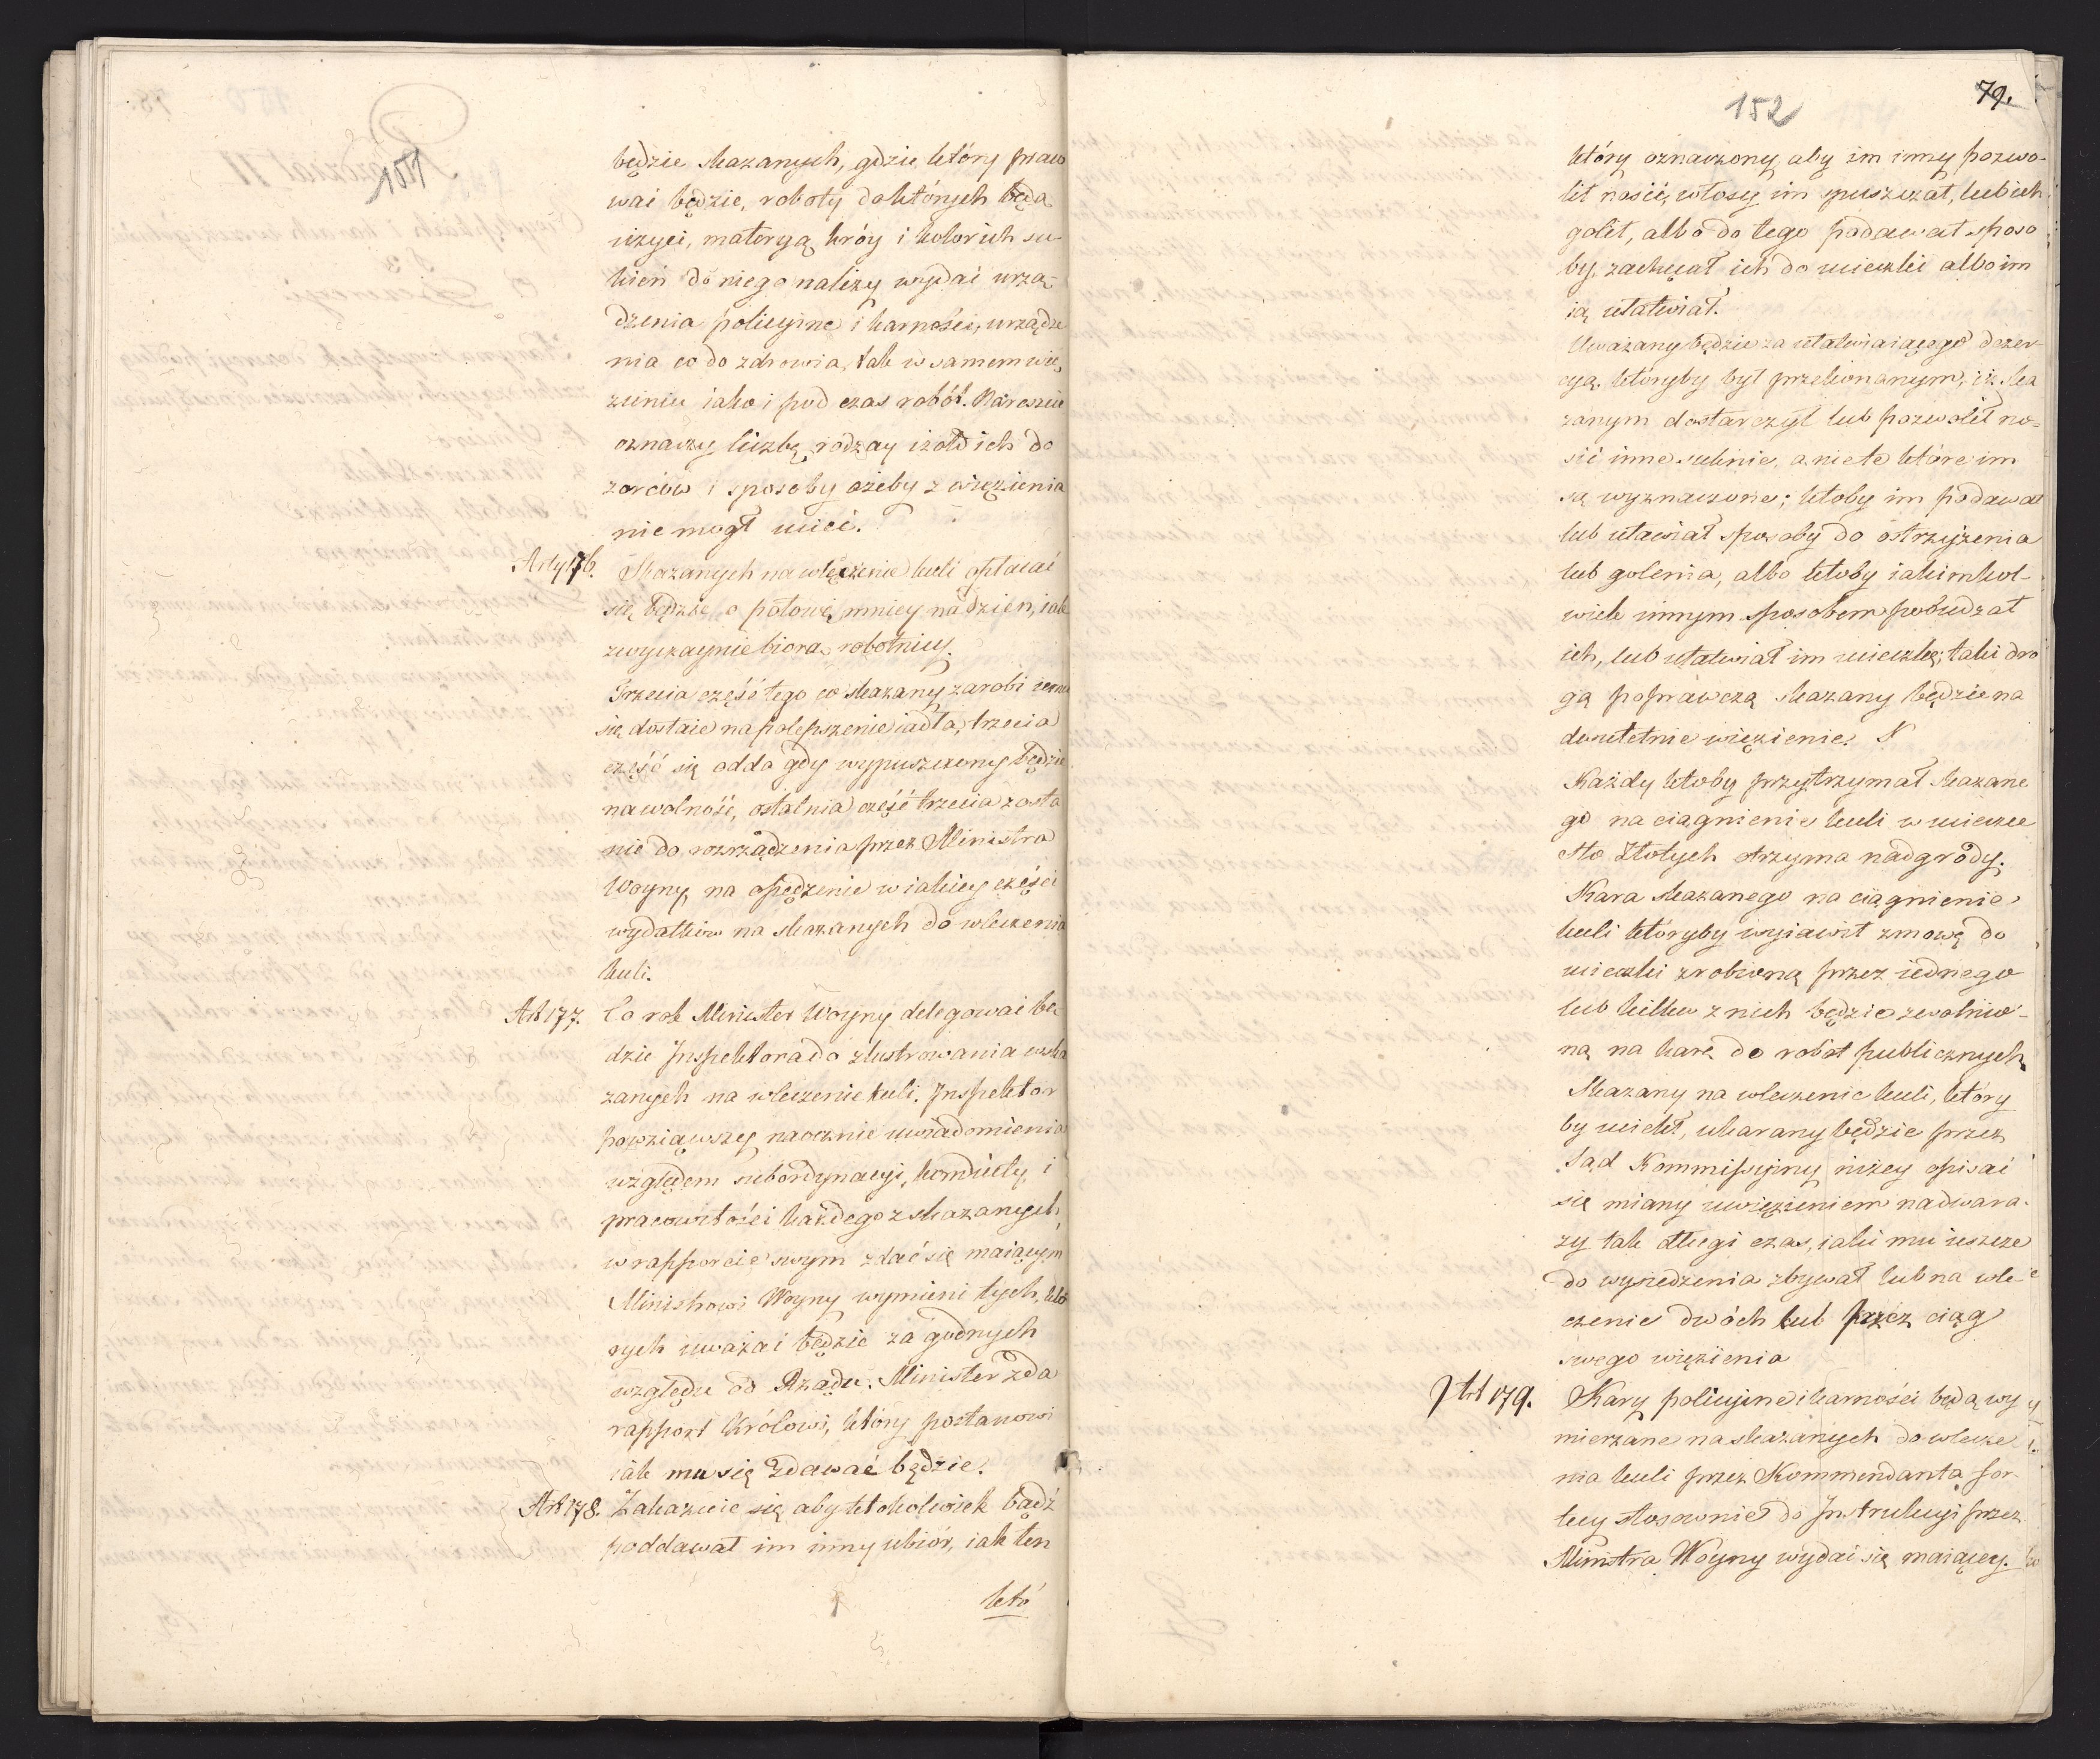 151
będzie skazanych, gdzie który praco
wać będzie, roboty do których będą
użyci, materyą, króy i kolor ich su-
kień do niego należy wydać urzą-
dzenia policyine i karności, urządze
nia co do zdrowia, tak w samem wię
zieniu iako i pod czas robót. Nareszcie
oznaczy liczbę, rodzay i żołd ich do
zorców i sposoby ażeby z więzienia
nie mogł uiść.
Arty 176. Skazanych na włęczenie kuli opłacać
się będzie o połowę mniey na dzień, iak
zwyczaynie biorą robotnicy.
Trzecia część tego co skazany zarobi iemu
się dostaie na polepszenie iadła, trzecia
część się odda gdy wypuszczony będzie
na wolność, ostatnia część trzecia zosta
nie do rozrządzenia przez Ministra
Woyny, na opędzenie w iakiey części
wydatków na skazanych do wleczenia
kuli.
Art 177. Co rok Minister Woyny delegować bę-
dzie Inspektora do zlustrowania wska
zanych na wleczenie kuli. Inspektor
powziąwszy naocznie uwiadomienia
względem subordynacyi, konduity, i
pracowitości każdego z skazanych,
w rapporcie swym zdać się maiącym
Ministrowi Woyny wymieni tych, któ
rych uważać będzie za godnych
względu od Rządu. Minister zda
rapport Królowi, który postanowi
iak mu się zdawać będzie.
Art 178. Zakazuie się aby ktokolwiek bądź
poddawał im inny ubiór, iak ten
któ
152
79.
który oznaczony, aby im inny pozwo-
lił nosić, włosy im spuszczał, lub ich
golił, albo do tego podawał sposo
by, zachęcał ich do ucieczki albo im
ią ułatwiał.
Uważany będzie za ułatwiaiącego dezer-
cyą, któryby był przekonanym, iż ska
zanym dostarczył lub pozwolił no-
sić inne suknie, a nie te które im
są wyznaczone; ktoby im podawał
lub ułatwiał sposoby do ostrzyżenia
lub golenia, albo ktoby iakimkol-
wiek innym sposobem pobudzał
ich, lub ułatwiał im ucieczkę; taki dro
gą poprawczą skazany będzie na
dwuletnie więzienie.
Każdy ktoby przytrzymał skazane
go na ciągnienie kuli w ucieczce
sto Złotych otrzyma nadgrody.
Kara skazanego na ciągnienie
kuli któryby wyiawił zmowę do
ucieczki zrobioną przez iednego
lub kilku z nich będzie zwolnio-
ną na karę do robót publicznych
Skazany na wleczenie kuli, który
by uciekł, ukarany będzie przez
Sąd Kommissyiny niżey opisać
się miany uwięzieniem na dwa ra-
zy tak długi czas, iaki mu ieszcze
do wysiedzenia zbywał lub na wle-
czenie dwóch kul przez ciąg
swego więzienia
Art 179. Kary policyine i karności będą wy
mierzane na skazanych do wlecze
nia kuli przez Kommendanta for-
tecy stosownie do Instrukcyi przez
Ministra Woyny wydać się maiącey.